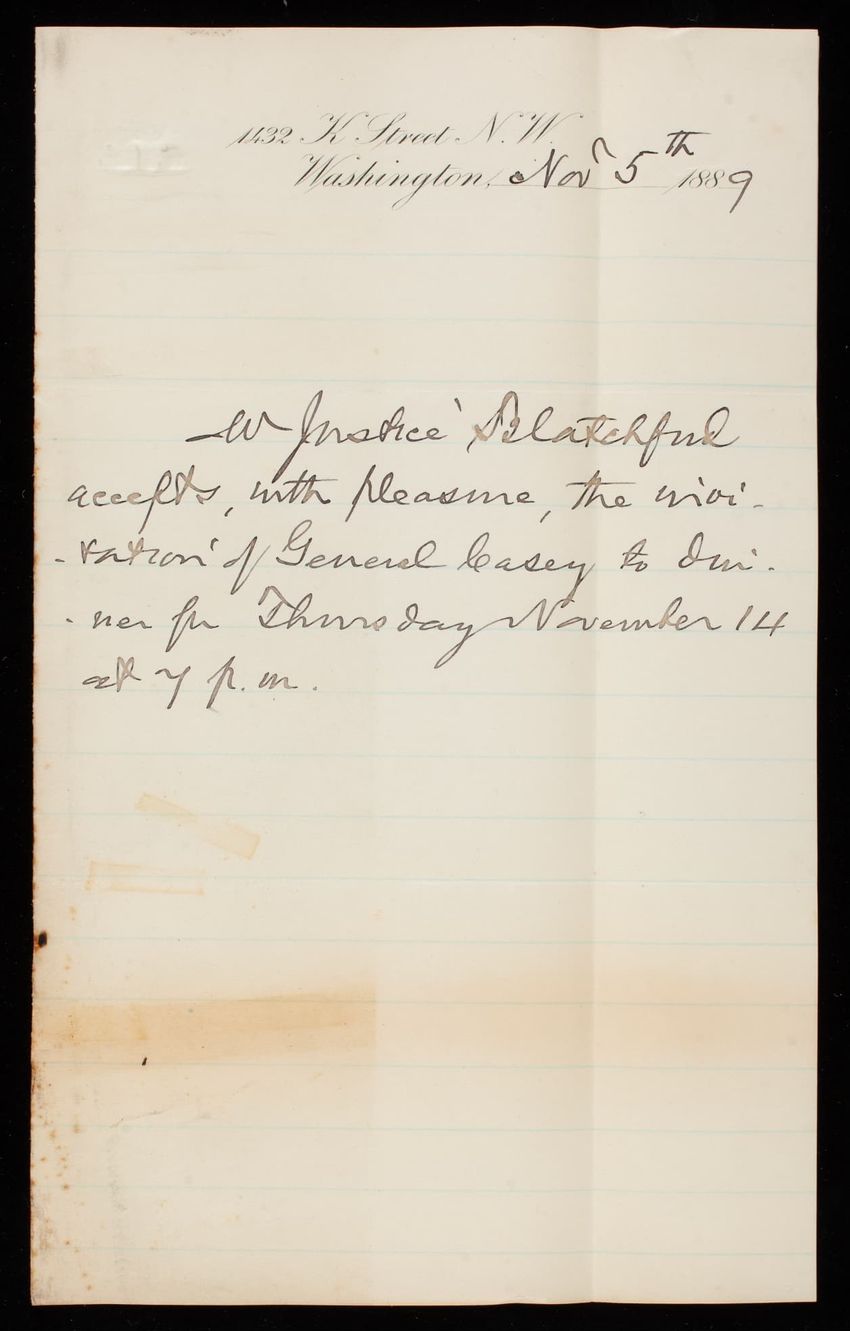 1432 K Street N. W.
Washington, Novr 5th 1889
Mr Justice Blatchford
accepts, with pleasure, the invi-
-tation of General Casey to din-
-ner for Thursday November 14
at 7 p.m.